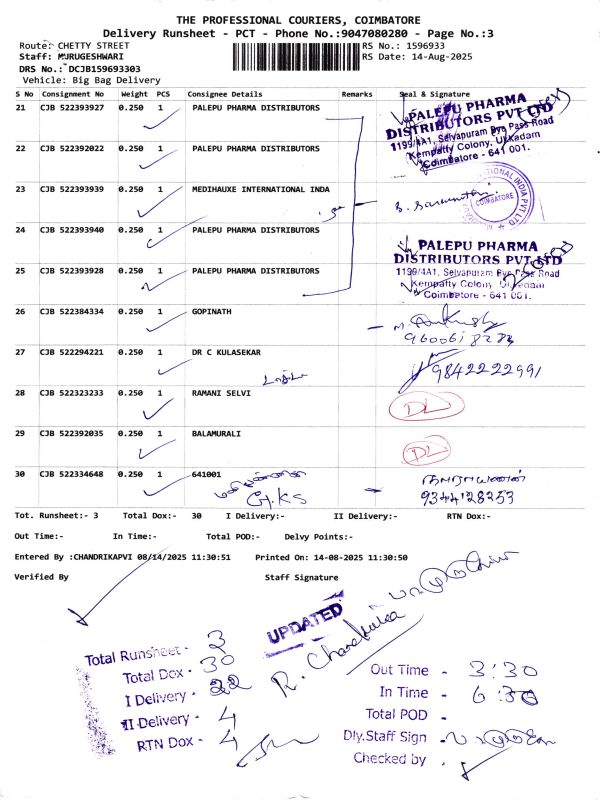 THE PROFESSIONAL COURIERS, COIMBATORE
Delivery Runsheet - PCT - Phone No.:9047080280 - Page No.:3
Route: CHETTY STREET RS No.: 1596933
Staff: MURUGESHWARI RS Date: 14-Aug-2025
DRS No.: DCJB159693303
Vehicle: Big Bag Delivery
S No Consignment No Weight PCS Consignee Details Remarks Seal & Signature
21 CJB 522393927 0.250 1 PALEPU PHARMA DISTRIBUTORS
PALEPU PHARMA
DISTRIBUTORS PVT LTD
1199/4A1, Selvapuram Bye Pass Road
Kempatty Colony, Ukkadam
Coimbatore - 641 001.
22 CJB 522392022 0.250 1 PALEPU PHARMA DISTRIBUTORS
23 CJB 522393939 0.250 1 MEDIHAUXE INTERNATIONAL INDA
COIMBATORE
24 CJB 522393940 0.250 1 PALEPU PHARMA DISTRIBUTORS
PALEPU PHARMA
DISTRIBUTORS PVT LTD
1199/4A1, Selvapuram Bye Pass Road
Kempatty Colony, Ukkadam
Coimbatore - 641 001.
25 CJB 522393928 0.250 1 PALEPU PHARMA DISTRIBUTORS
26 CJB 522384334 0.250 1 GOPINATH
27 CJB 522294221 0.250 1 DR C KULASEKAR 9842222991
28 CJB 522323233 0.250 1 RAMANI SELVI DL
29 CJB 522392035 0.250 1 BALAMURALI DL
30 CJB 522334648 0.250 1 641001
G.K.S 9344128353
Tot. Runsheet:- 3 Total Dox:- 30 I Delivery:- II Delivery:- RTN Dox:-
Out Time:- In Time:- Total POD:- Delvy Points:-
Entered By :CHANDRIKAPVI 08/14/2025 11:30:51 Printed On: 14-08-2025 11:30:50
Verified By Staff Signature
UPDATED
R. Chandrika
Total Runsheet - 3
Total Dox - 30
I Delivery - 22
II Delivery - 4
RTN Dox - 4
Out Time - 3:30
In Time - 6:30
Total POD -
Dly.Staff Sign -
Checked by .